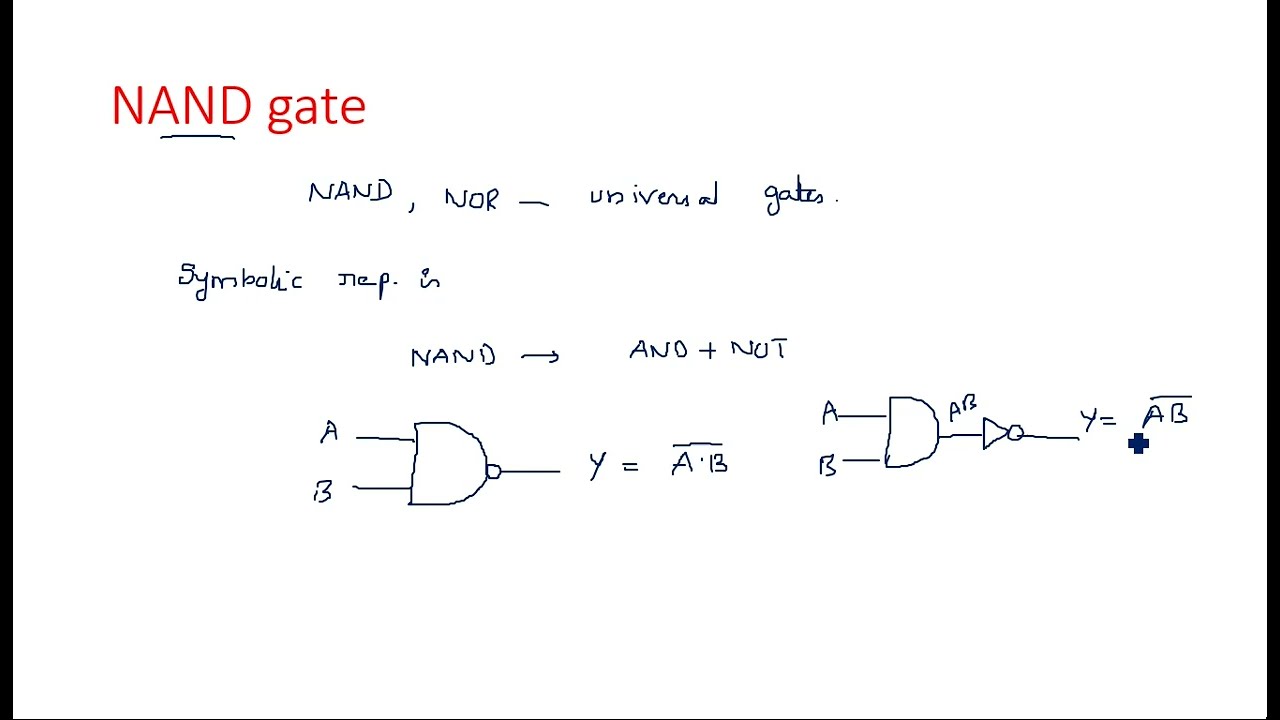 NAND gate
NAND, NOR — universal gates.
Symbolic rep. is
NAND → AND + NOT
A
B
Y = A̅·̅B̅
A
B
AB
Y = A̅B̅